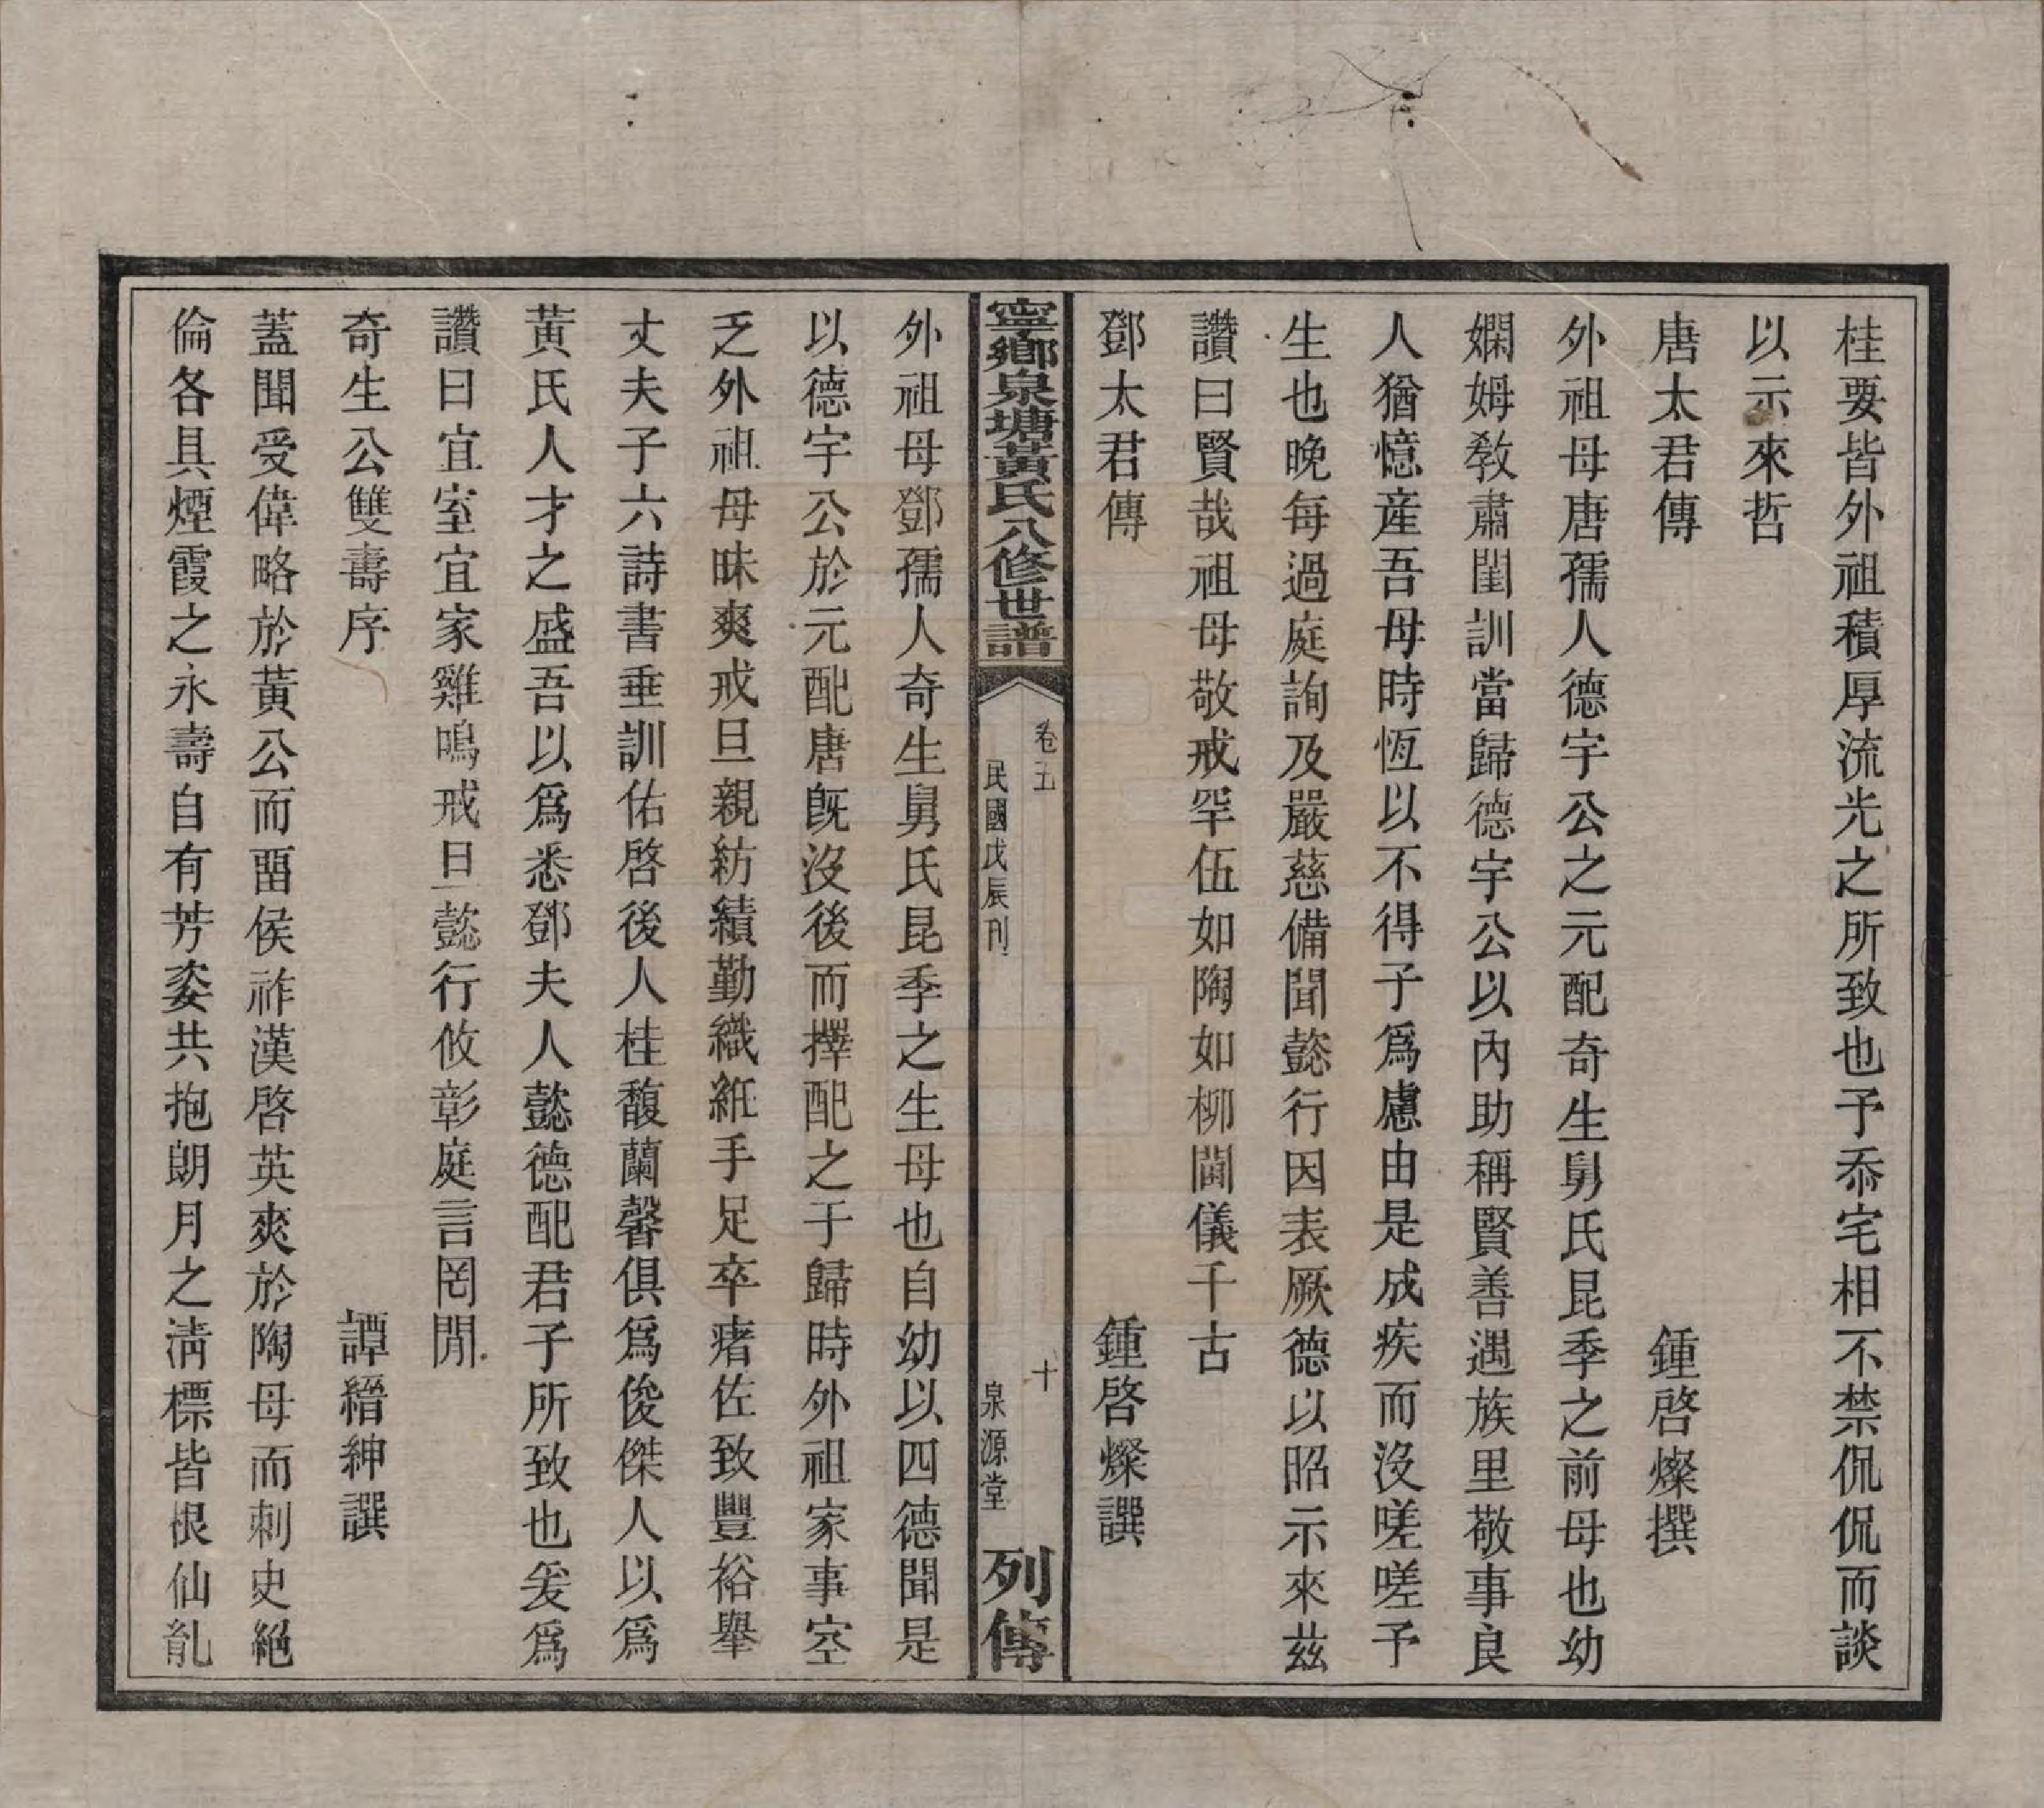 桂要皆外祖積厚流光之所致也予忝宅相不禁侃侃而談
以示來哲
唐太君傳　鍾啓燦撰
外祖母唐孺人德宇公之元配奇生舅氏昆季之前母也幼
嫻姆敎肅閨訓當歸德宇公以內助稱賢善遇族里敬事良
人猶憶産吾母時恆以不得子爲慮由是成疾而沒嗟嗟予
生也晚每過庭詢及嚴慈備聞懿行因表厥德以昭示來茲
讚曰賢哉祖母敬戒罕伍如陶如柳閫儀千古
鄧太君傳　鍾啓燦譔
寧鄉泉塘黃氏八修世譜
卷五
十
民國戊辰刊
泉源堂
列傳
外祖母鄧孺人奇生舅氏昆季之生母也自幼以四德聞是
以德宇公於元配唐旣沒後而擇配之于歸時外祖家事空
乏外祖母昧爽戒旦親紡績勤織紝手足卒瘏佐致豐裕舉
丈夫子六詩書垂訓佑啓後人桂馥蘭馨俱爲俊傑人以爲
黃氏人才之盛吾以爲悉鄧夫人懿德配君子所致也爰爲
讚曰宜室宜家雞鳴戒旦懿行攸彰庭言罔閒
奇生公雙壽序　譚縉紳譔
蓋聞受偉略於黃公而畱侯祚漢啓英爽於陶母而刺史絕
倫各具煙霞之永壽自有芳姿共抱朗月之淸標皆根仙骪